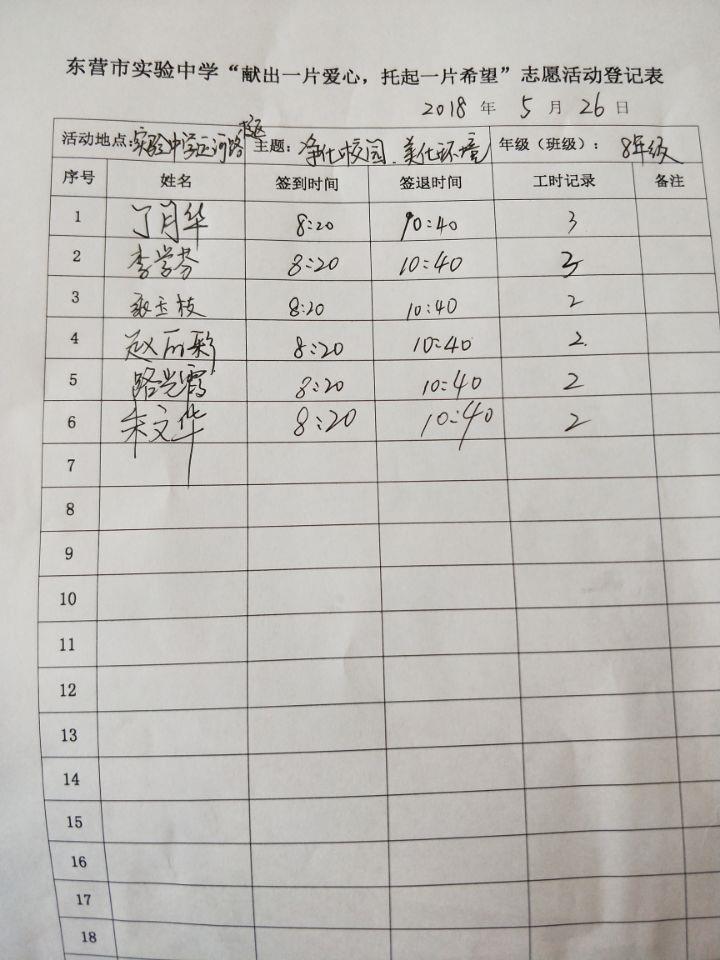 东营市实验中学“献出一片爱心，托起一片希望”志愿活动登记表
2018 年 5 月 26 日
活动地点：实验中学运河路校区 主题：净化校园、美化环境 年级（班级）：8年级
序号 姓名 签到时间 签退时间 工时记录 备注
1 丁月华 8:20 10:40 3
2 李学芬 8:20 10:40 3
3 玉枝 8:20 10:40 2
4 赵 彩 8:20 10:40 2
5 路光霞 8:20 10:40 2
6 朱文华 8:20 10:40 2
7
8
9
10
11
12
13
14
15
16
17
18